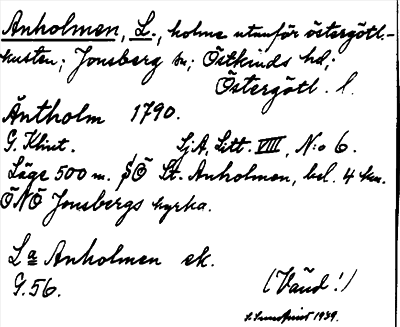 Anholmen, L., holme utanför östergötl.-
kusten; Jonsberg sn; Östkinds hd;
Östergötl. l.
Äntholm 1790.
G. Klint. SjA, Litt. VIII, N:o 6.
Läge 500 m. SÖ St. Anholmen, bel. 4 km.
ÖNÖ Jonsbergs kyrka.
La Anholmen ek.
G. 56. (Vänd!)
1939.